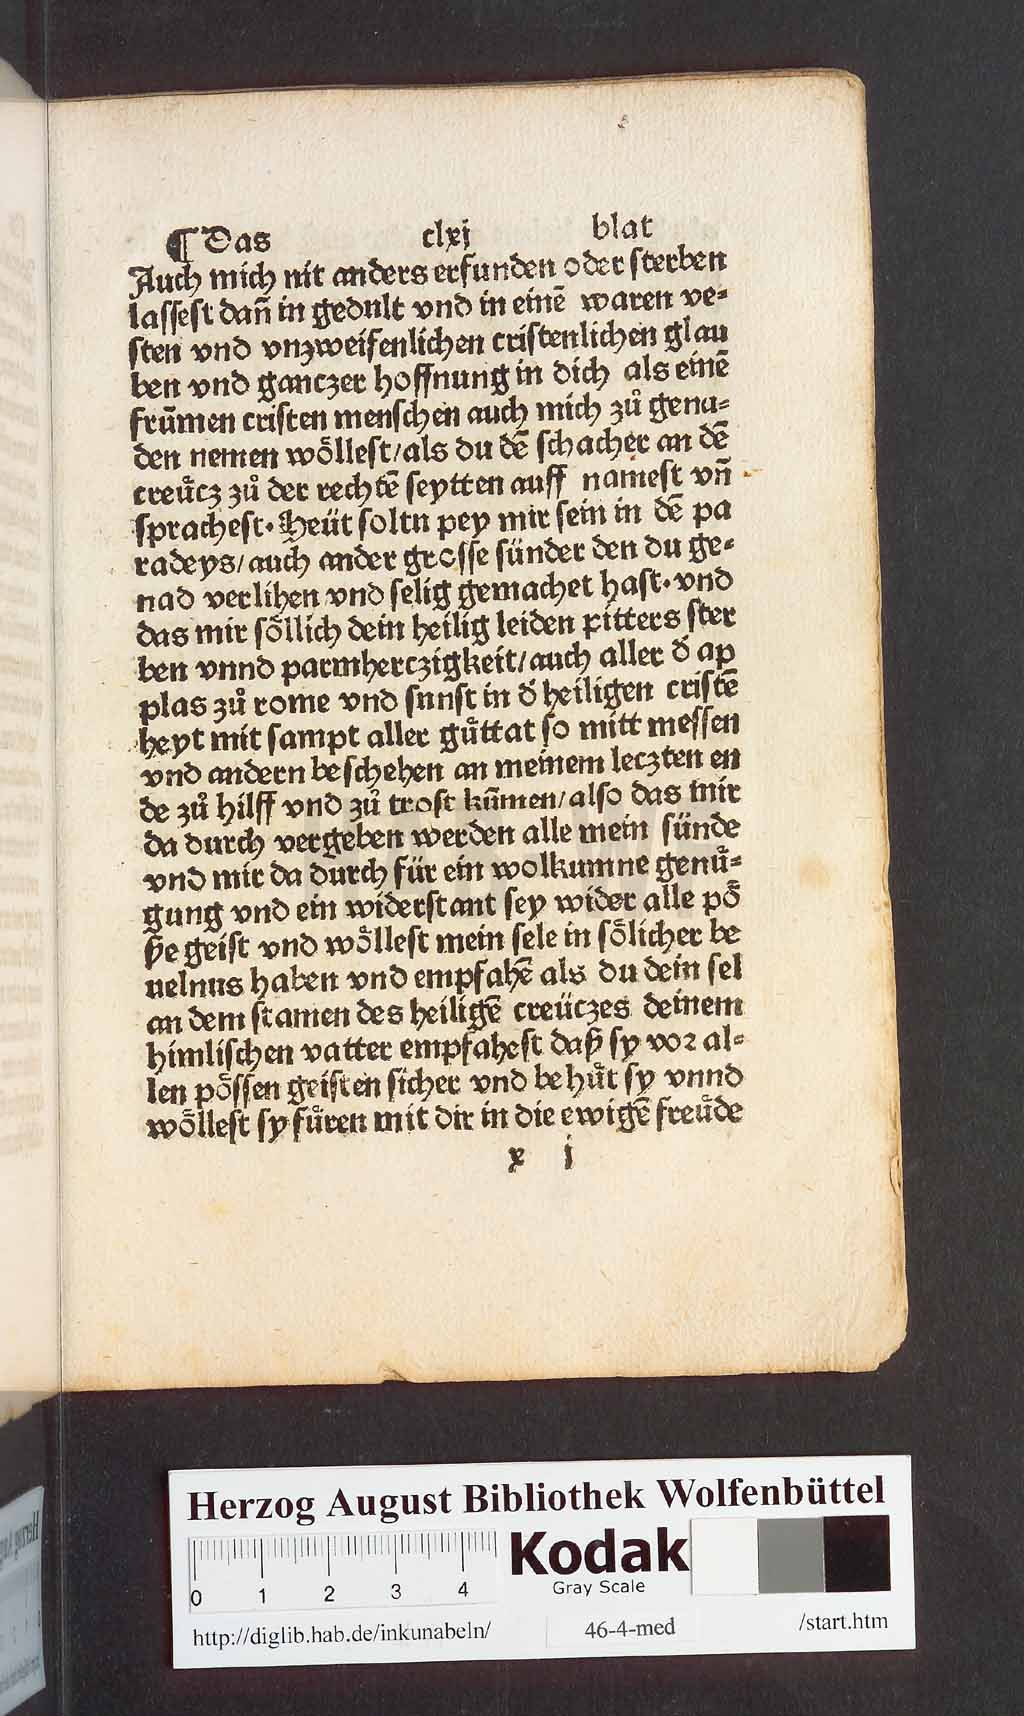 ¶ Das clxi blat
Auch mich nit anders erfunden oder sterben
lassest dañ in gedult vnd in einē waren ve-
sten vnd vnzweifenlichen cristenlichen glau
ben vnd ganczer hoffnung in dich als einē
frūmen cristen menschen auch mich zů gena-
den nemen wöllest/als du dē schacher an dē
creücz zů der rechtē seytten auff namest vñ
sprachest. Heüt soltu pey mir sein in dē pa
radeys/auch ander grosse sünder den du ge-
nad verlihen vnd selig gemachet hast.vnd
das mir söllich dein heilig leiden pitters ster
ben vnnd parmherczigkeit/auch aller d̓ ap
plas zů rome vnd sunst in d̓ heiligen cristē
heyt mit sampt aller gůttat so mitt messen
vnd andern beschehen an meinem leczten en
de zů hilff vnd zů trost kūmen/also das mir
da durch vergeben werden alle mein sünde
vnd mir da durch für ein wolkumne genů-
gung vnd ein widerstant sey wider alle pö
ße geist vnd wöllest mein sele in sölicher be
uelnus haben vnd empfahē als du dein sel
an dem stamen des heiligē creüczes deinem
himlischen vatter empfahest daß sy vor al-
len pössen geisten sicher vnd be hůt sy vnnd
wöllest sy füren mit dir in die ewigē freüde
x j
Herzog August Bibliothek Wolfenbüttel
0 1 2 3 4
Kodak
Gray Scale
http://diglib.hab.de/inkunabeln/ 46-4-med /start.htm